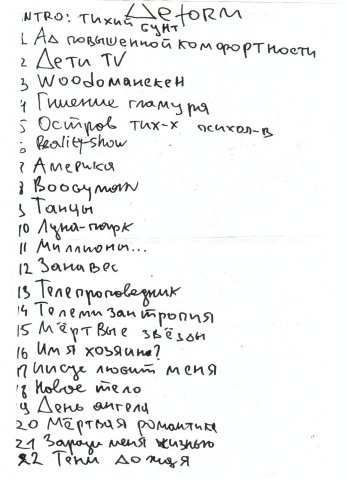 Деform
INTRO: тихий бунт
1 Ад повышенной комфортности
2 Дети TV
3 Woodoманекен
4 Гниение гламура
5 Остров тих-х психол-в
6 Reality-show
7 Америка
8 Boogyman
9 Танцы
10 Луна-парк
11 Миллионы...
12 Занавес
13 Телепроповедник
14 Телемизантропия
15 Мёртвые звёзды
16 Имя хозяина?
17 Иисус любит меня
18 Новое тело
19 День ангела
20 Мёртвая романтика
21 Зароди меня жизнью
22 Тени дождя